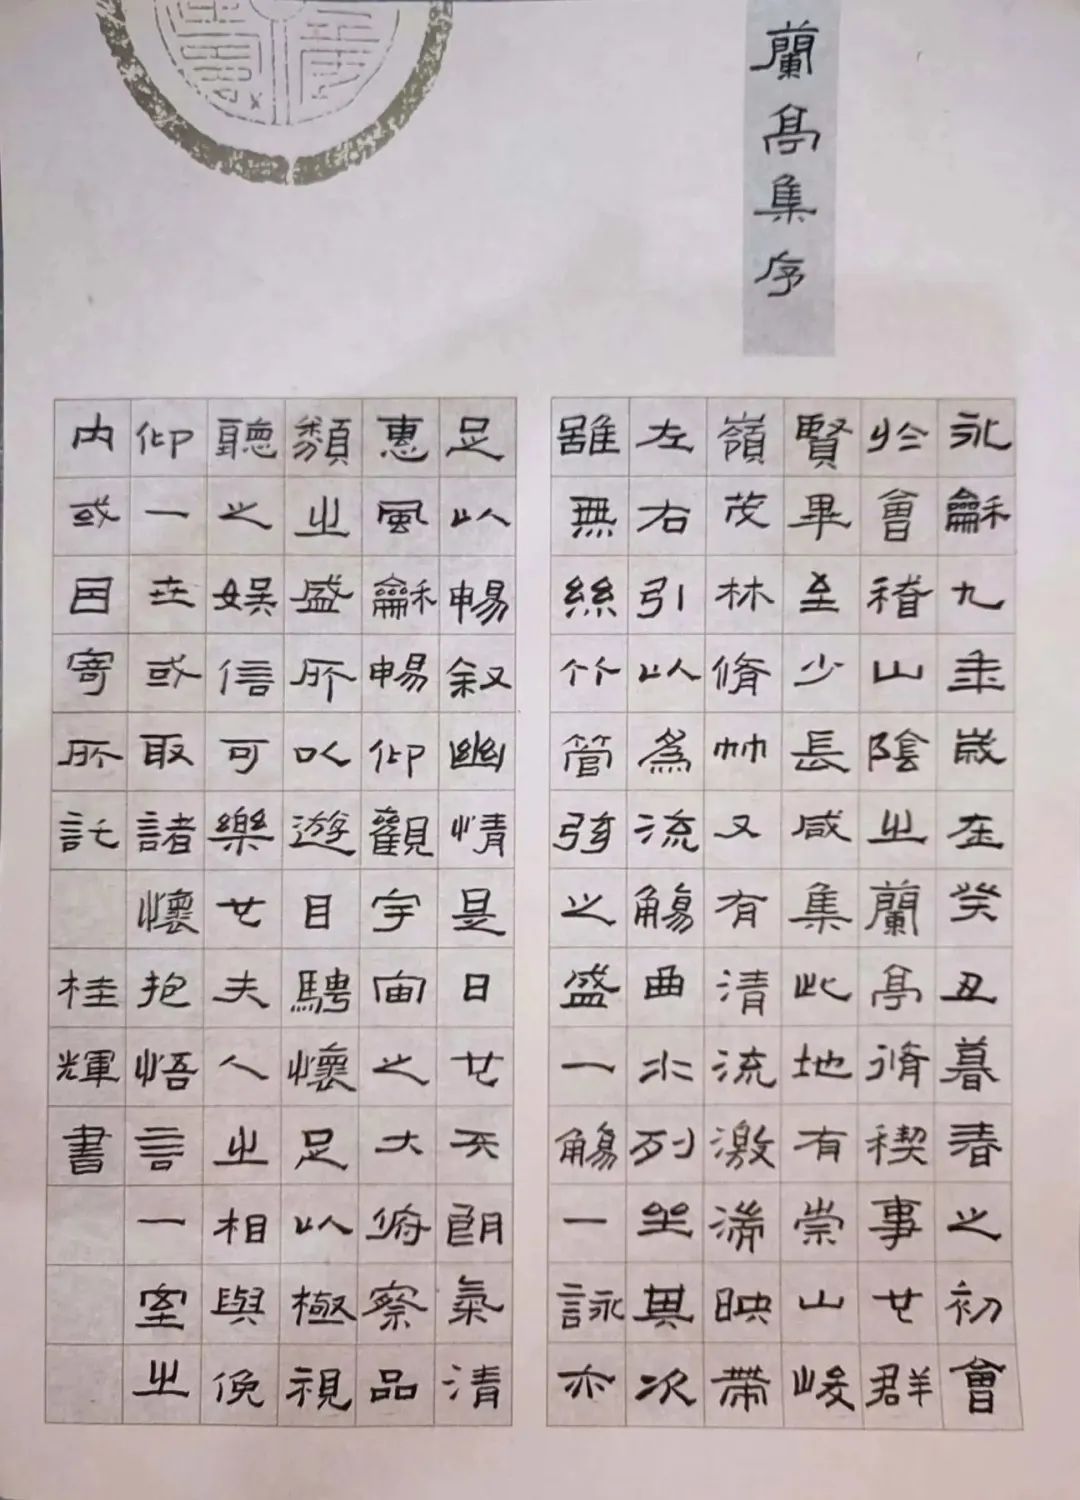 蘭亭集序
永龢九年歲在癸丑暮春之初會
於會稽山陰之蘭亭脩稧事也群
賢畢至少長咸集此地有崇山峻
嶺茂林脩竹又有清流激湍映帶
左右引以為流觴曲水列坐其次
雖無絲竹管弦之盛一觴一詠亦
足以暢叙幽情是日也天朗氣清
惠風龢暢仰觀宇宙之大俯察品
類之盛所以遊目騁懷足以極視
聽之娛信可樂也夫人之相與俛
仰一世或取諸懷抱悟言一室之
内或因寄所託 桂輝書